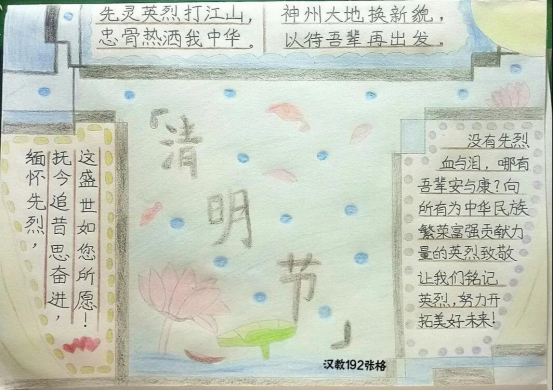 先灵英烈打江山，
忠骨热洒我中华。
神州大地换新貌，
以待吾辈再出发。
「清明节」
缅怀先烈，
抚今追昔思奋进，
这盛世如您所愿！
没有先烈
血与泪，哪有
吾辈安与康？向
所有为中华民族
繁荣富强贡献力
量的英烈致敬
让我们铭记
英烈，努力开
拓美好未来！
汉教192张格